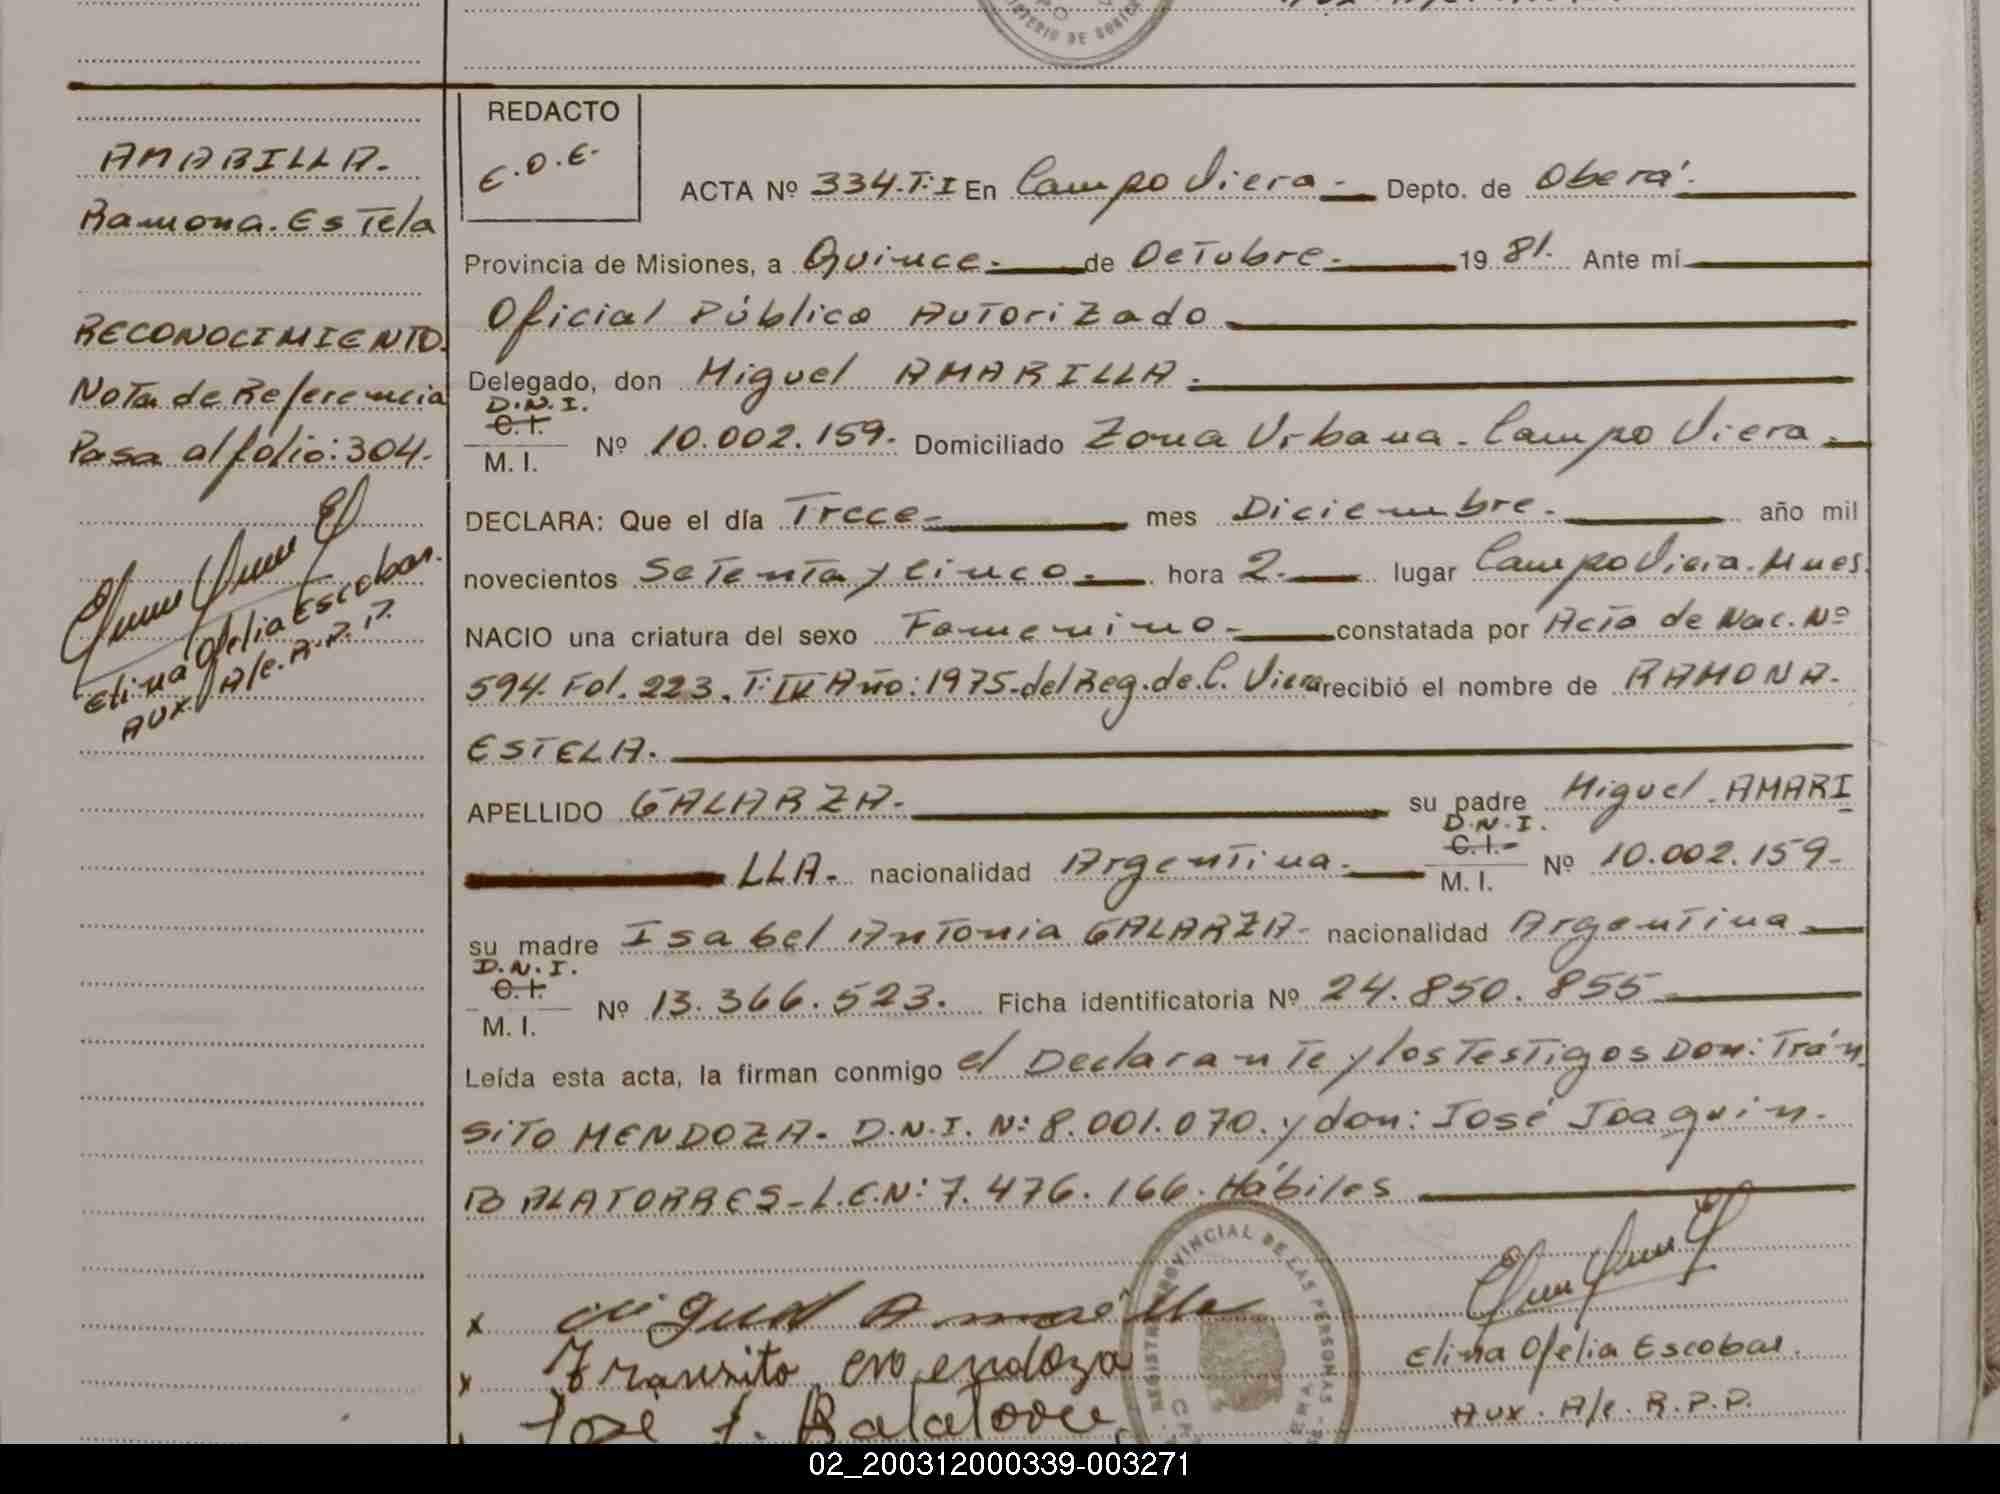 STERIO DE GOBIER
AMARILLA.
Ramona. Estela
RECONOCIMIENTO.
Nota de Referencia
Pasa al folio: 304.
Elina Ofelia Escobar.
AUX. A/c. R.P.P.
REDACTO
E.O.E.
ACTA Nº 334.T:I En Campo Viera.- Depto. de Oberá.
Provincia de Misiones, a Quince.- de Octubre.- 19 81. Ante mí
Oficial Público Autorizado
Delegado, don Miguel AMARILLA.
D.N.I.
C.I.
M. I. Nº 10.002.159. Domiciliado Zona Urbana. Campo Viera.
DECLARA: Que el día Trece- mes Diciembre.- año mil
novecientos Setenta y cinco.- hora 2.- lugar Campo Viera. Mnes.
NACIO una criatura del sexo Femenino.- constatada por Acta de Nac. Nº
594. Fol. 223. T: IV Año: 1975. del Reg. de C. Viera recibió el nombre de RAMONA.
ESTELA.
APELLIDO GALARZA.- su padre Miguel. AMARI
LLA. nacionalidad Argentina.- D.N.I. C.I. M. I. Nº 10.002.159.
su madre Isabel Antonia GALARZA. nacionalidad Argentina
D.N.I.
C.I.
M. I. Nº 13.366.523. Ficha identificatoria Nº 24.850.855
Leída esta acta, la firman conmigo el Declarante y los Testigos Don: Trán
sito MENDOZA. D.N.I. N: 8.001.070. y don: José Joaquín.
BALATORRES- L.E.N: 7.476.166. Hábiles
x Miguel Amarilla
x Transito Mendoza
José J. Balatorre
REGISTRO PROVINCIAL DE LAS PERSONAS
Elina Ofélia Escobar.
Aux. A/c. R.P.P.
02_200312000339-003271